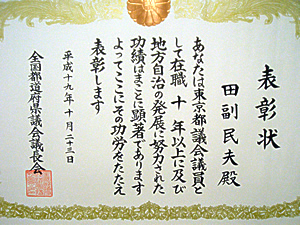 表彰状
田副民夫殿
あなたは東京都議会議員と
して在職十年以上に及び
地方自治の発展に努力された
功績はまことに顕著であります
よってここにその功労をたたえ
表彰します
平成十九年十月二十三日
全国都道府県議会議長会